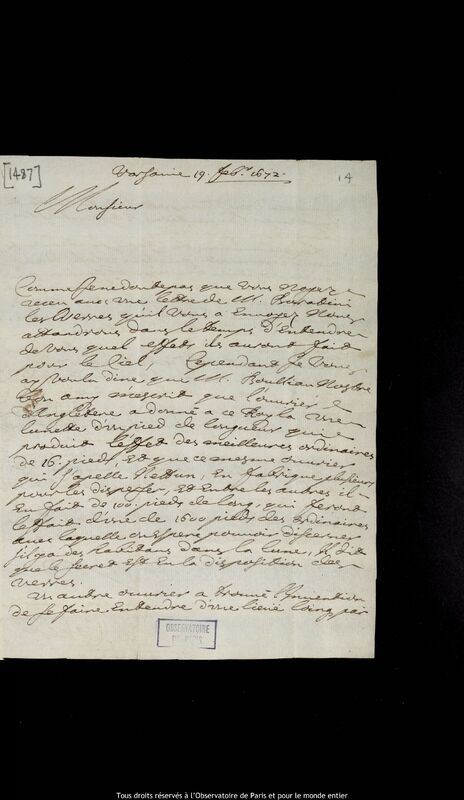 [1487]
14
Varsovie 19. feb.r 1672.
Monsieur
Comme je ne doute pas que vous n'ayez
receu avec une lettre de Mr. Buratini
les Verres qu'il vous a Envoyez Nous
attandrons dans le temps d'Entendre
de Vous quel effets ils auront fait
pour le Ciel, Cependant je Vous
ay voulu dire que Mr. Boulliau Nostre
bon amy mescrit que l'ouvrier
d'Angletere a donné a ce Roy la
lunette d'un pied de longueur qui
produit leffet des meilleures ordinaires
de 16 pieds, Et que ce mesme ouvrier
qui s'apelle Nettun, En fabrique plusieurs
pour les disperser, Et Entre les autres il
En fait de 100. pieds de long, qui feront
leffait d'une de 1600 pieds des ordinaires
avec laquelle on Espere pouvoir discerner
s'il y a des habitans dans la lune, Il dit
que le secret Est En la disposition des
verres.
Un autre ouvrier a trouvé l'Invention
de se faire Entendre d'une lieue loing par
OBSERVATOIRE
DE PARIS
Tous droits réservés à l'Observatoire de Paris et pour le monde entier